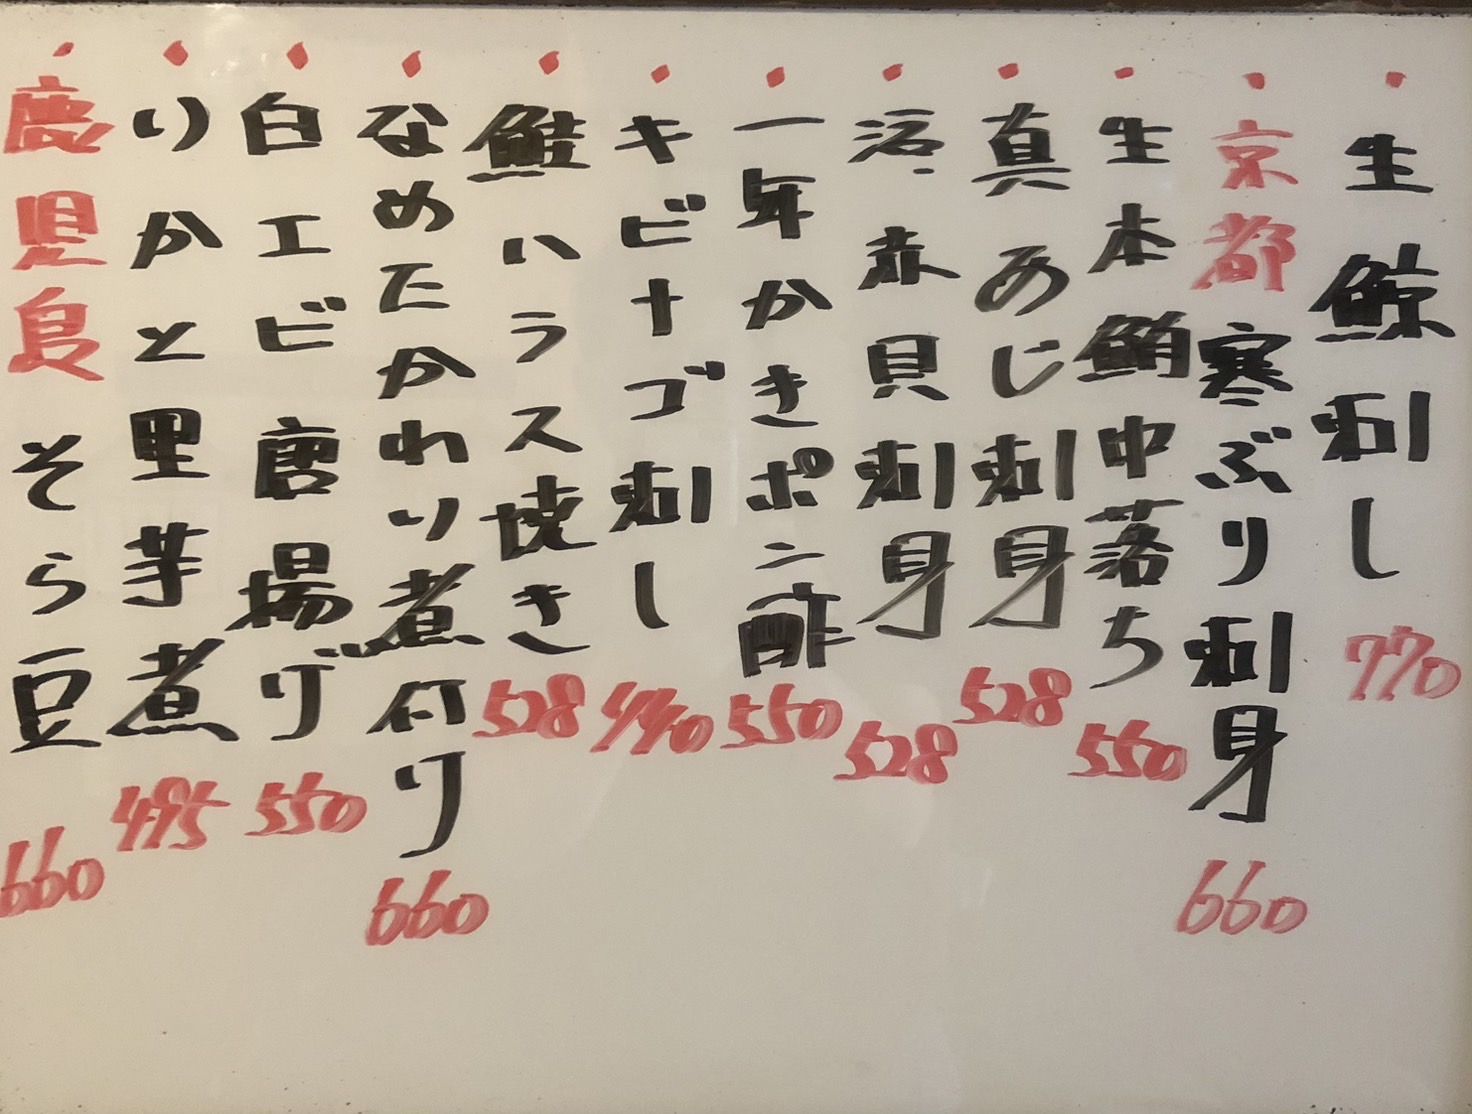 生鯨刺し 770
京都寒ぶり刺身 660
生本鮪中落ち 550
真あじ刺身 528
活赤貝刺身 528
一年かきポン酢 550
キビナゴ刺し 440
鮭ハラス焼き 528
なめたかれい煮付け 660
白エビ唐揚げ 550
いかと里芋煮 495
鹿児島そら豆 660